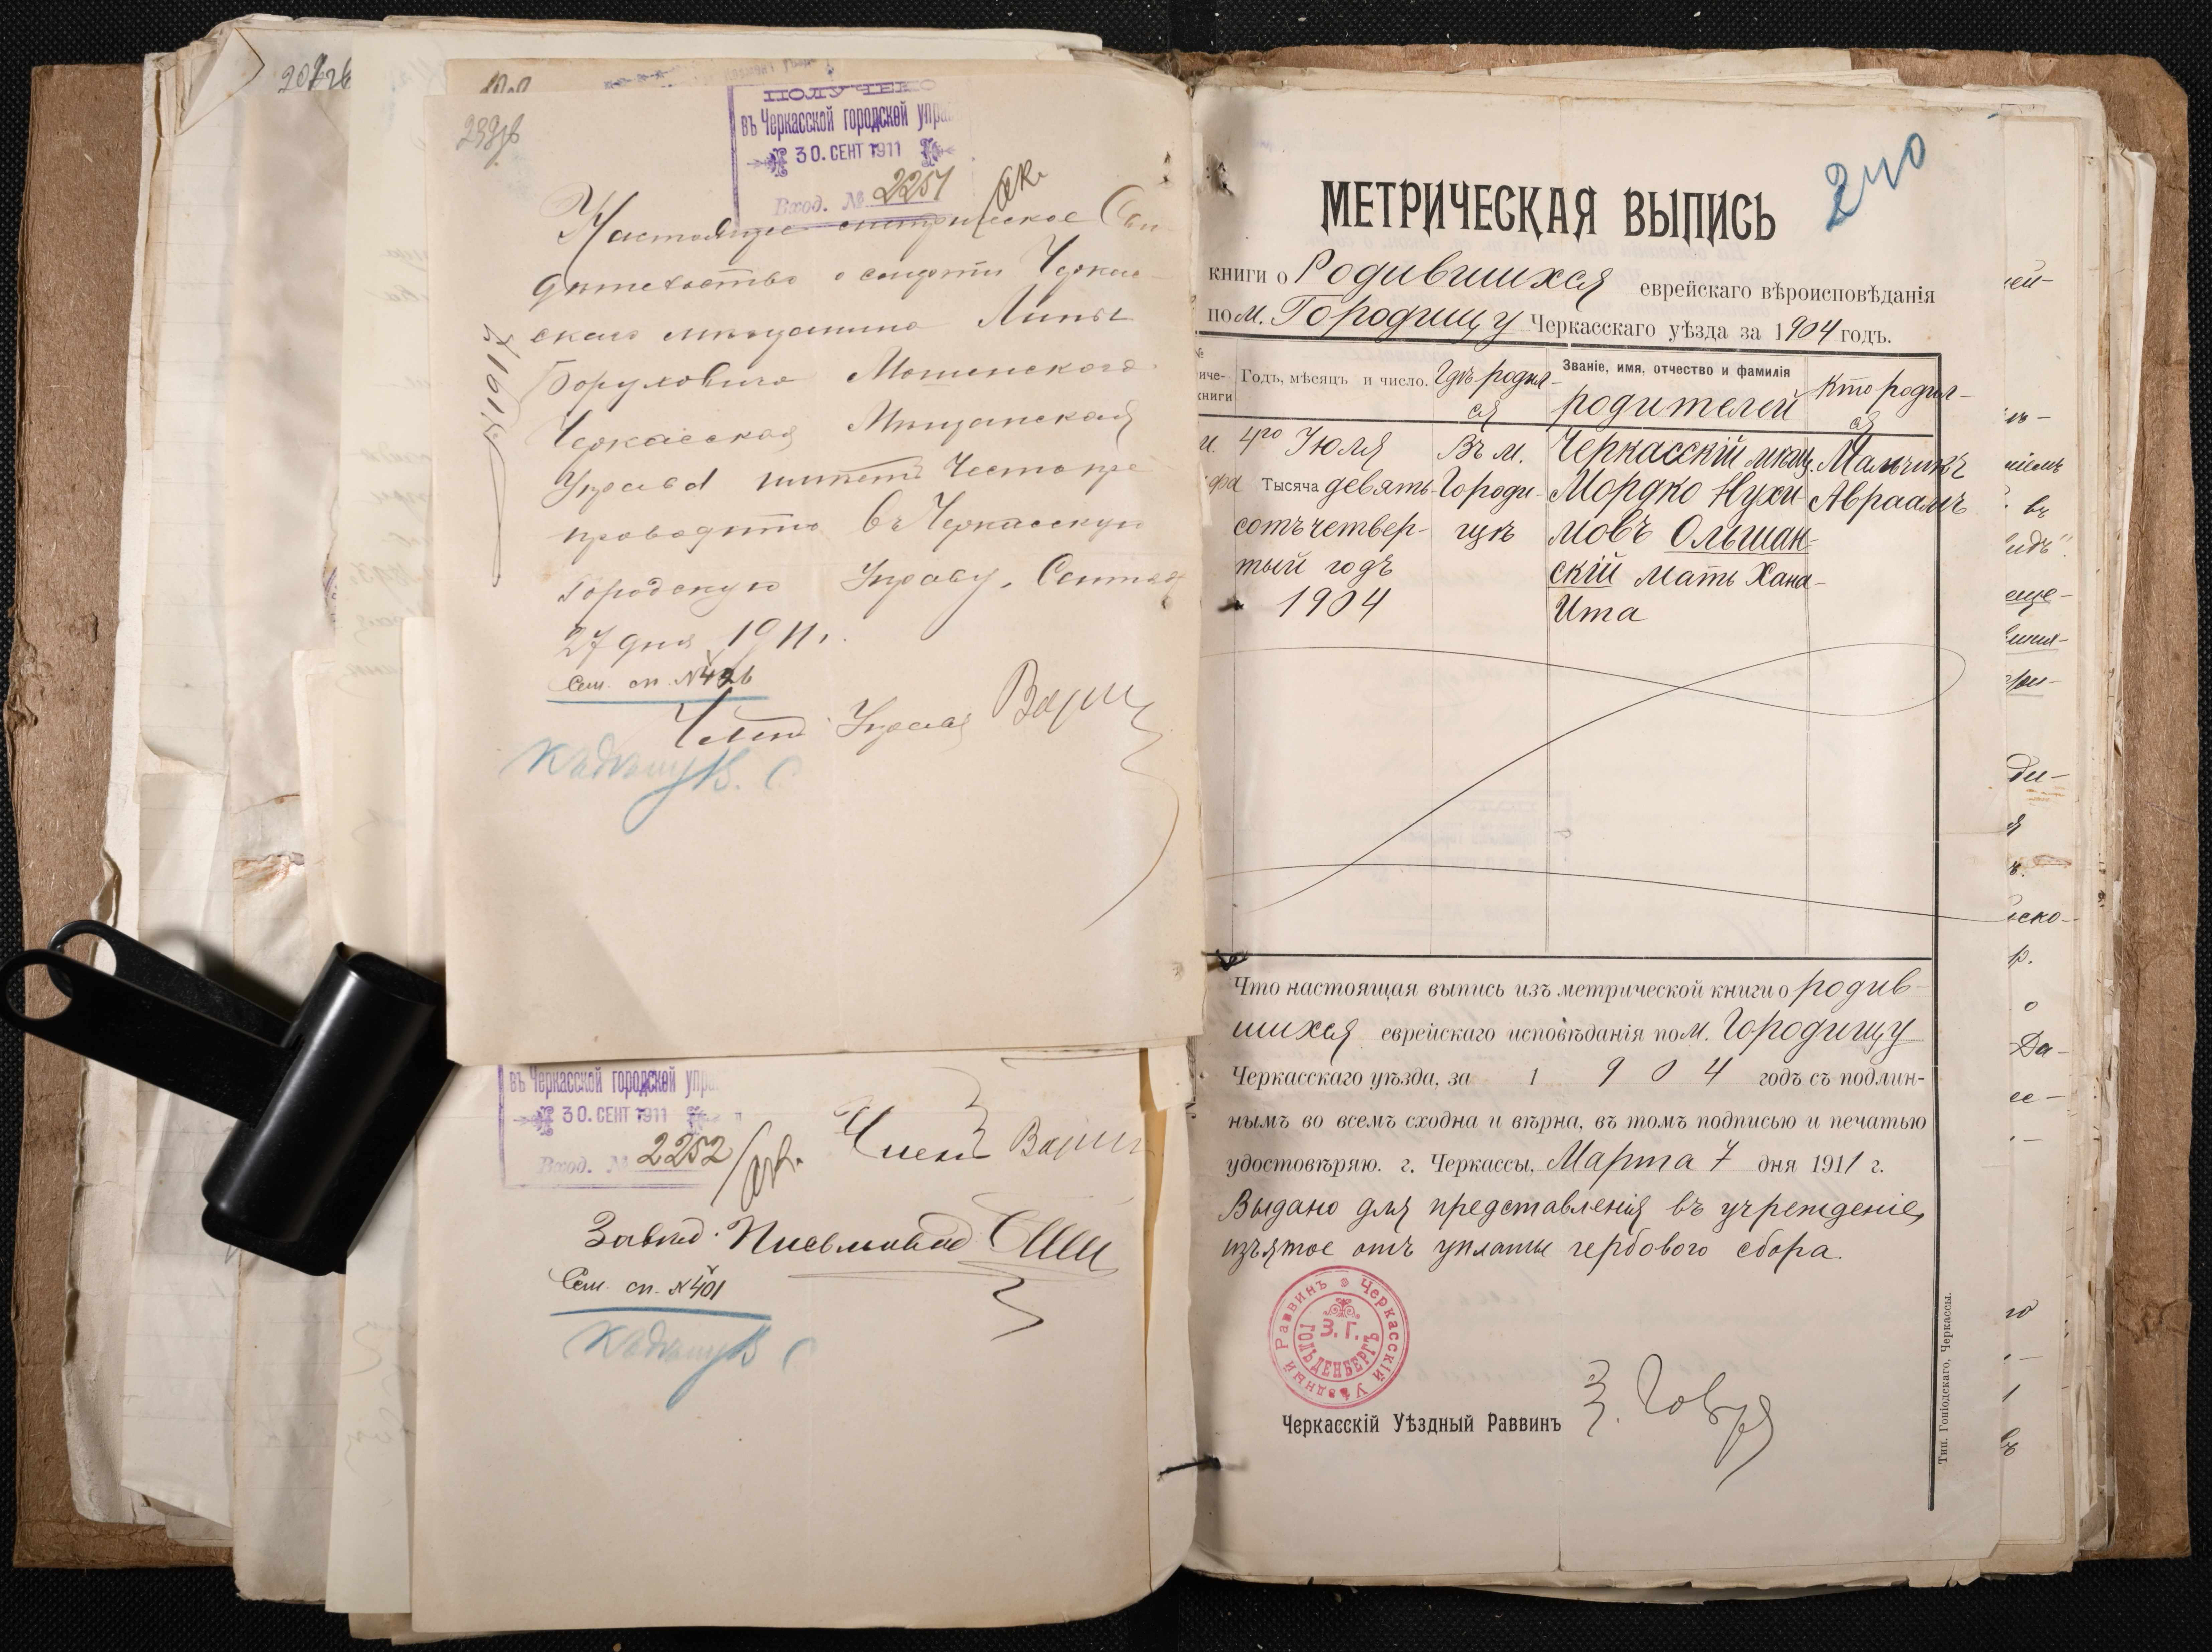 207
239
ПОЛУЧЕНО
въ Черкасской городской упра
30. СЕНТ 1911
Вход. № 2251
Настоящее метрическое Сви-
дѣтельство о смерти Черкас-
скаго мѣщанина Липы
Боруховича Мошенскаго
Черкасская Мѣщанская
Управа имѣетъ честь пре-
проводить въ Черкасскую
Городскую Управу. Сентяб
27 дня 1911 г.
Сем. сп. № 426
Членъ Управы
№ 1917
въ Черкасской городской упра
30. СЕНТ 1911
Вход. № 2252
Членъ
Завѣд. Письмовод.
Сем. сп. № 401
240
МЕТРИЧЕСКАЯ ВЫПИСЬ
книги о Родившихся еврейскаго вѣроисповѣданія
по м. Городищу Черкасскаго уѣзда за 1904 годъ.
№
иче-
книги
Годъ, мѣсяцъ и число.
Гдѣ родил-
ся
Званіе, имя, отчество и фамилія
родителей
Кто родил-
ся
4го Іюля
Тысяча девять-
сотъ четвер-
тый годъ
1904
Въ м.
Городи-
щѣ
Черкасскій мѣщ.
Мордко Нухи-
мовъ Ольшан-
скій мать Хана-
Ита
Мальчикъ
Авраамъ
Что настоящая выпись изъ метрической книги о родив-
шихся еврейскаго исповѣданія по м. Городищу
Черкасскаго уѣзда, за 1904 годъ съ подлин-
нымъ во всемъ сходна и вѣрна, въ томъ подписью и печатью
удостовѣряю. г. Черкассы, Марта 7 дня 1911 г.
Выдано для представленія въ учрежденіе,
изъятое отъ уплаты гербового сбора.
Черкасскій Уѣздный Раввинъ
З. Г.
ГОЛЬДЕНБЕРГЪ
Черкасскій Уѣздный Раввинъ
Тип. Гоніодскаго, Черкассы.